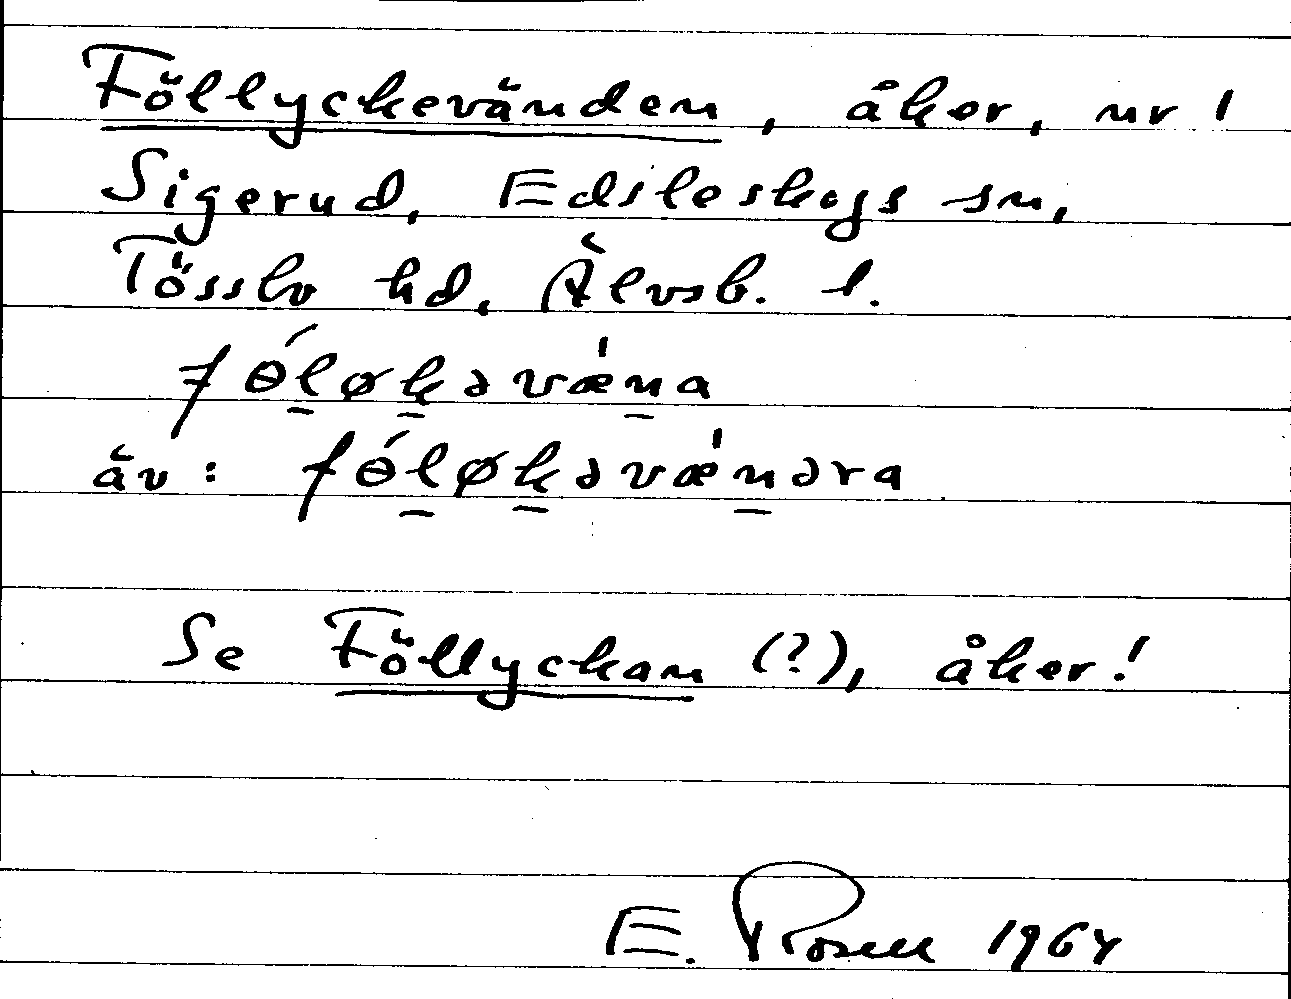 Föllyckevänden, åker, nr 1
Sigerud, Edsleskogs sn,
Tössbo hd, Älvsb. l.
fɵ́l̲øk̲əvæ̀n̲a
äv: fɵ́l̲øk̲əvæ̀n̲əra
Se Föllyckan (?), åker!
E. Rosell 1964